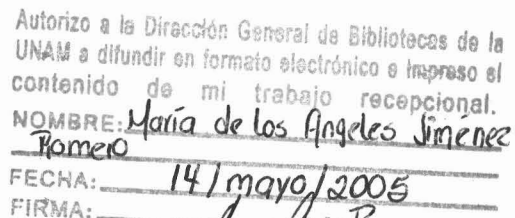 Autorizo a la Dirección General de Bibliotecas de la
UNAM a difundir en formato electrónico e impreso el
contenido de mi trabajo recepcional.
NOMBRE: María de los Angeles Jiménez
Romero
FECHA: 14/mayo/2005
FIRMA: